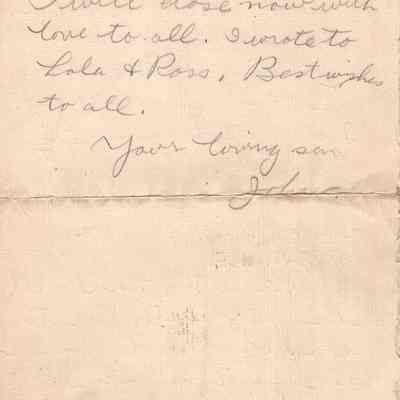 I will close now with
love to all. I wrote to
Lola & Ross. Best wishes
to all.
Your loving son
John